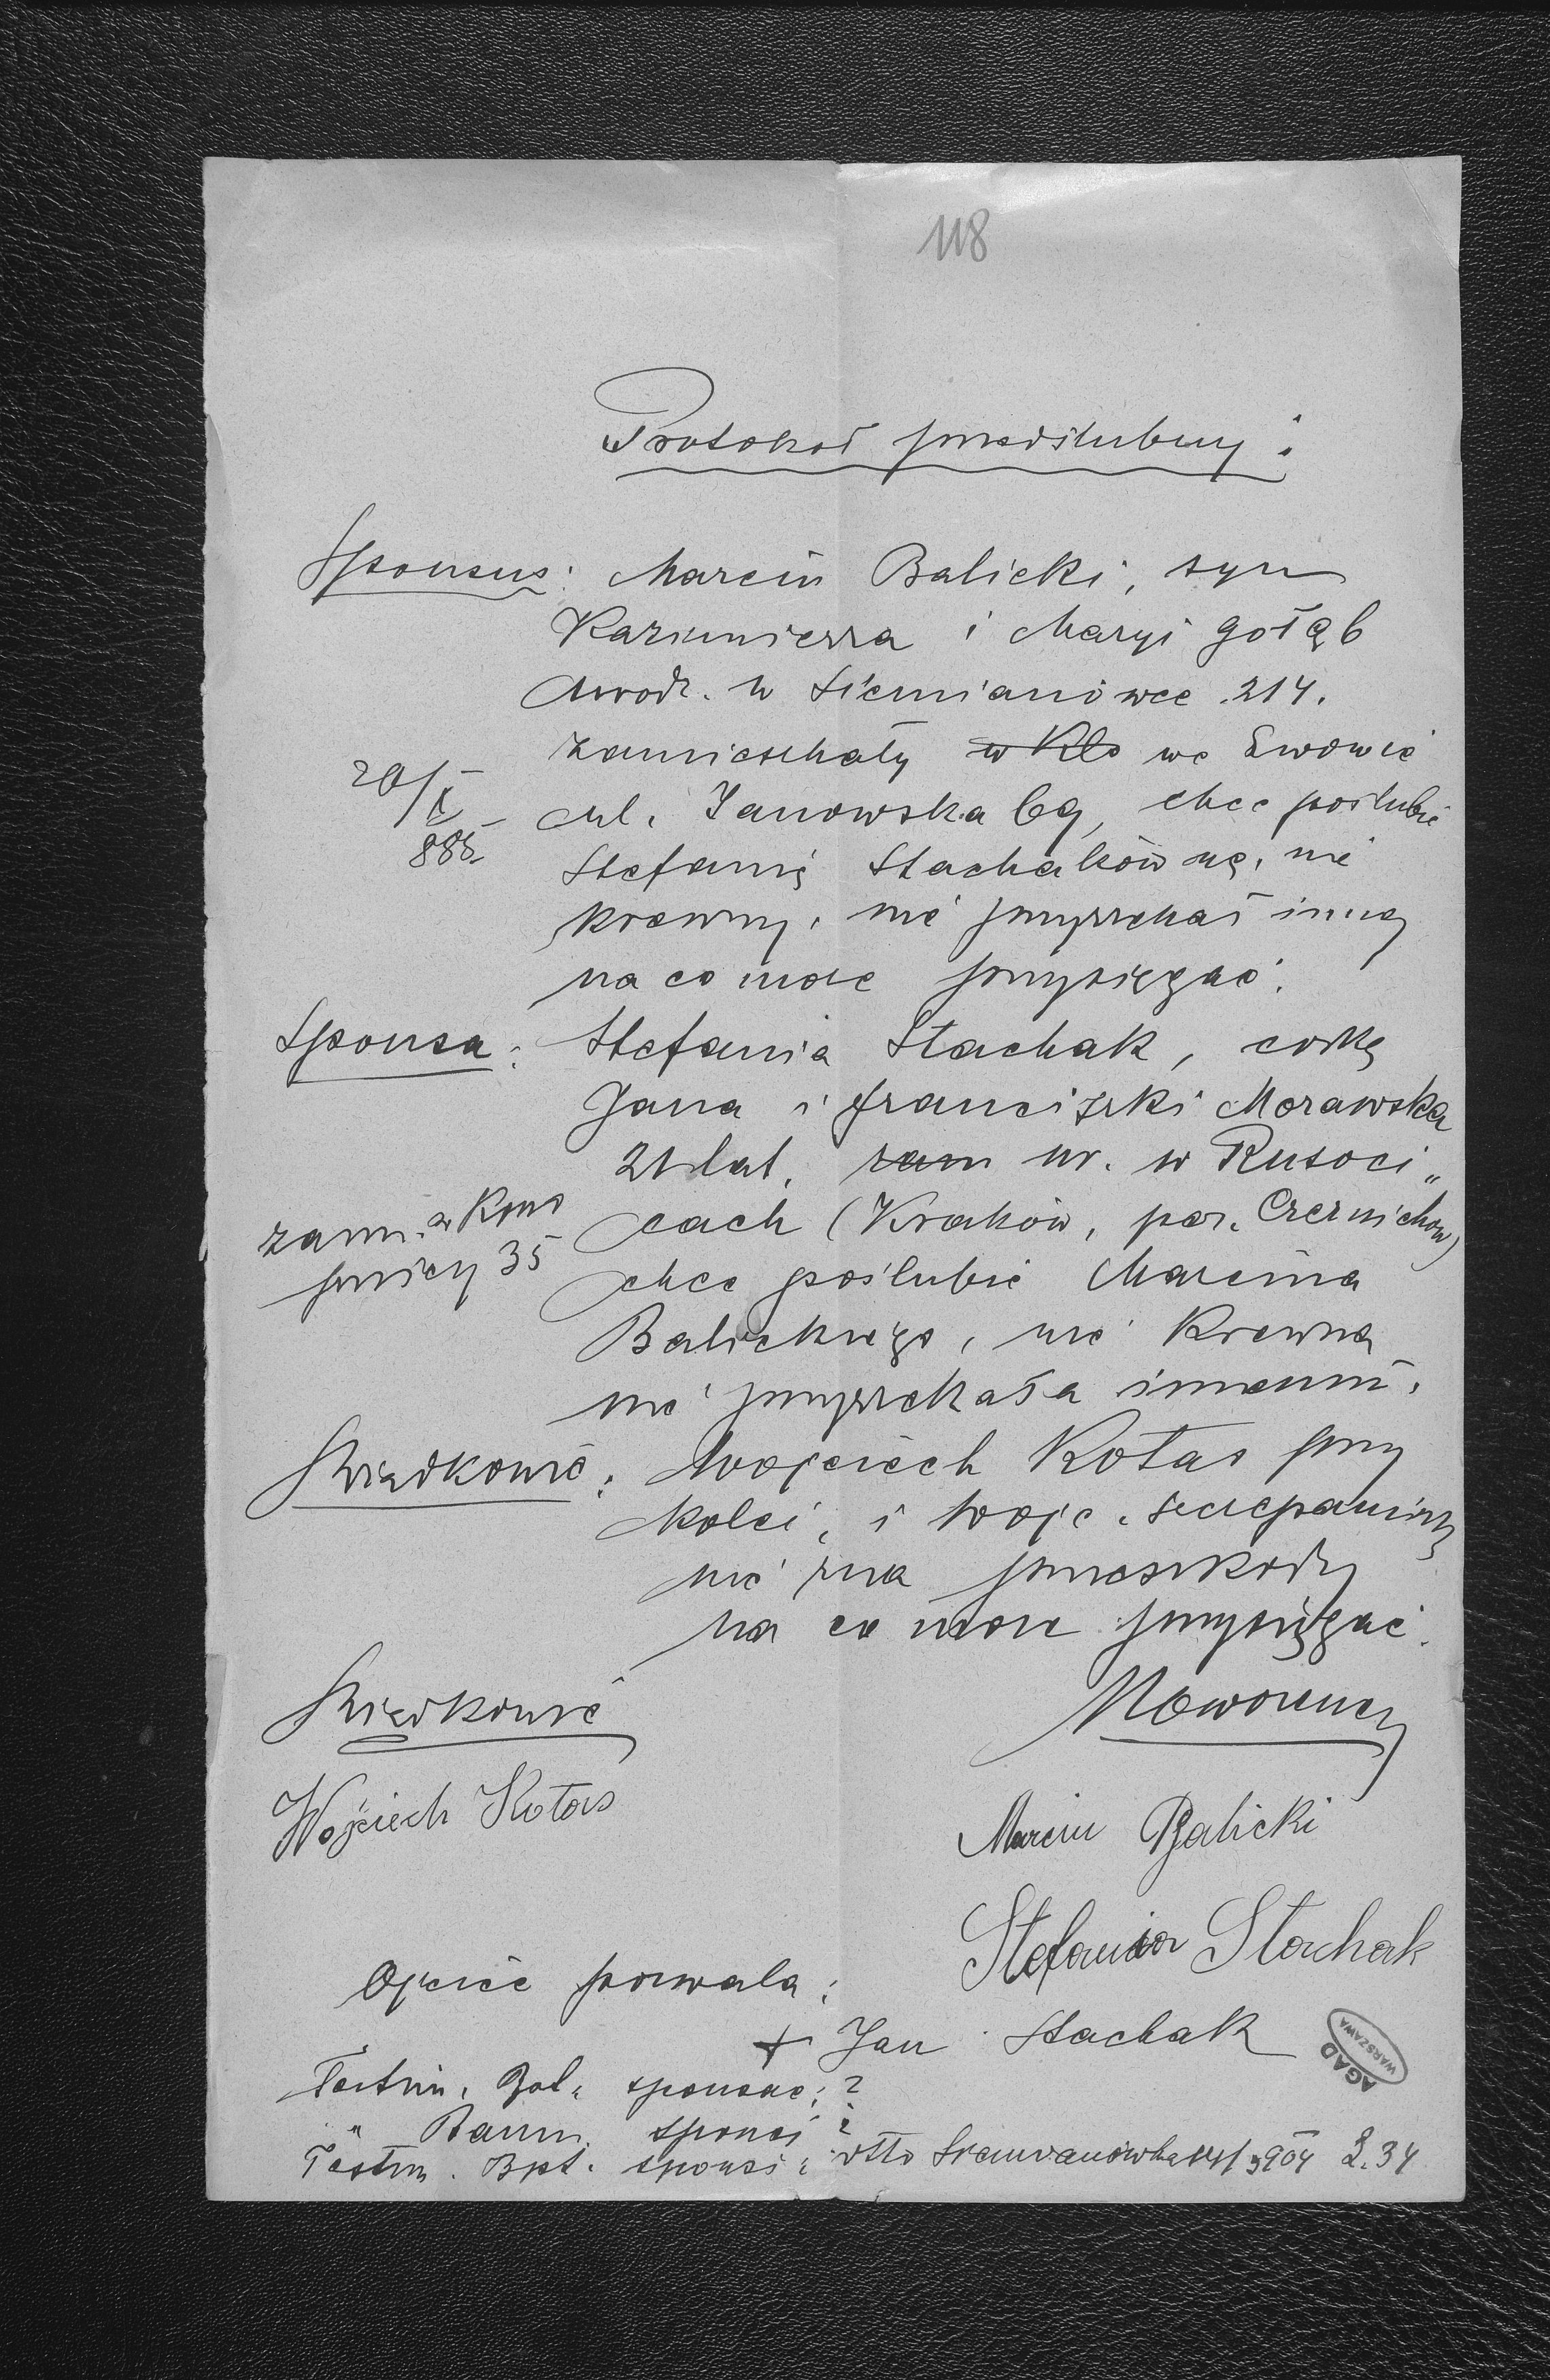 118
Protokół przedślubny:
Sponsus: Marcin Balicki, syn
Kazimierza i Maryi Gołąb
urodz. w Siemianówce 214.
zamieszkały w Klo we Lwowie
20/X 885
ul. Janowska 69, chce poślubić
Stefanię Stachakównę, nie
krewny, nie przyrzekał innej
na co może przysięgać.
Sponsa: Stefania Stachak, córkę
Jana i Franciszki Morawska
21 lat, zam ur. w Rusoci„
zam. w Kro
cach (Kraków, par. Czernichów)
35
chce poślubić Marcina
Balickiego, nie krewna
nie przyrzekała innemu.
Świadkowie: Wojciech Kotas przy
kolei, i Wojc.
nie zna przeszkody
na co może przysięgać.
Świadkowie
Nowożeńcy
Wojciech Kotas
Marcin Balicki
Stefania Stachak
Ojciec pozwala:
+ Jan Stachak
AGAD
WARSZAWA
Testim. Bat. sponsae: ?
" Bann. sponsi ?
Testim. Bpt. sponsi: dtto Siemianówka 904 L. 34